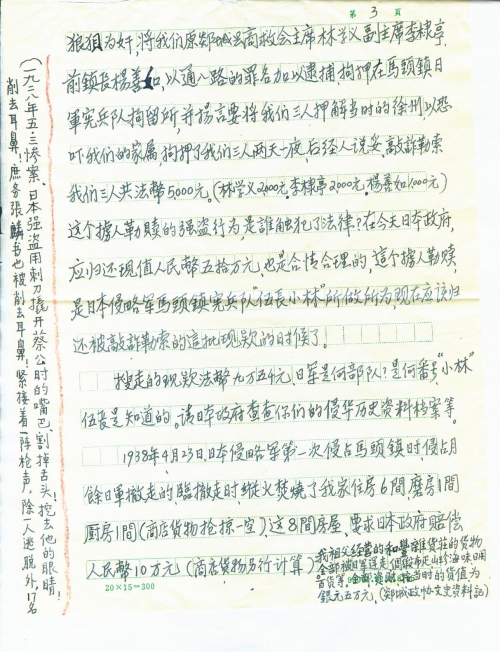 第 3 页
狼狙为奸,将我们原郯城县商救会主席林学义副主席李棣亭,
前镇长楊善如,以通八路的罪名加以逮捕拘押在馬頭鎮日
軍宪兵队拘留所,并揚言要将我们三人押解当时的徐州以恐
吓我们的家属拘押了我们三人两天一夜,后经人说妥敲詐勒索
我们三人共法幣5,000元。(林学义2,000元.李棣亭2,000元.楊善如1,000元)
这个擄人勒贖的强盗行为是誰触犯了法律?在今天日本政府,
应归还现值人民幣五拾万元,也是合情合理的,這个擄人勒赎,
是日本侵略軍馬頭鎮宪兵队"伍長小林"所做所为,现在应该归
还被敲詐勒索的這批现款的时候了。
搜走的现款法幣九万五仟元,日軍是何部队?是何番号,"小林"
伍長是知道的。请日本政府查查你们的侵华历史資料档案等。
1938年4月23日,日本侵略軍第一次侵占馬頭鎮时侵占月
餘日軍撤走的,臨撤走时,縦火焚燒了我家住房6間,磨房1間
厨房1間(商店貨物抢掠一空).这8間房屋,要求日本政府賠偿
人民幣10万元(商店貨物另行计算)
我祖父经营的和豐雜貨荘的货物
全部被日軍運走,個緞布疋山珍海味日用
百货等,当时的货值为
銀元五万元,(郯城政协文史资料記)
20×15=300
(一九二八年五·三惨案、日本强盗用刺刀撬开蔡公时的嘴巴、割掉舌头!挖去他的眼睛!
削去耳鼻!庶务張麟吾也被削去耳鼻!紧接着一阵枪声,除一人逃脱外,17名